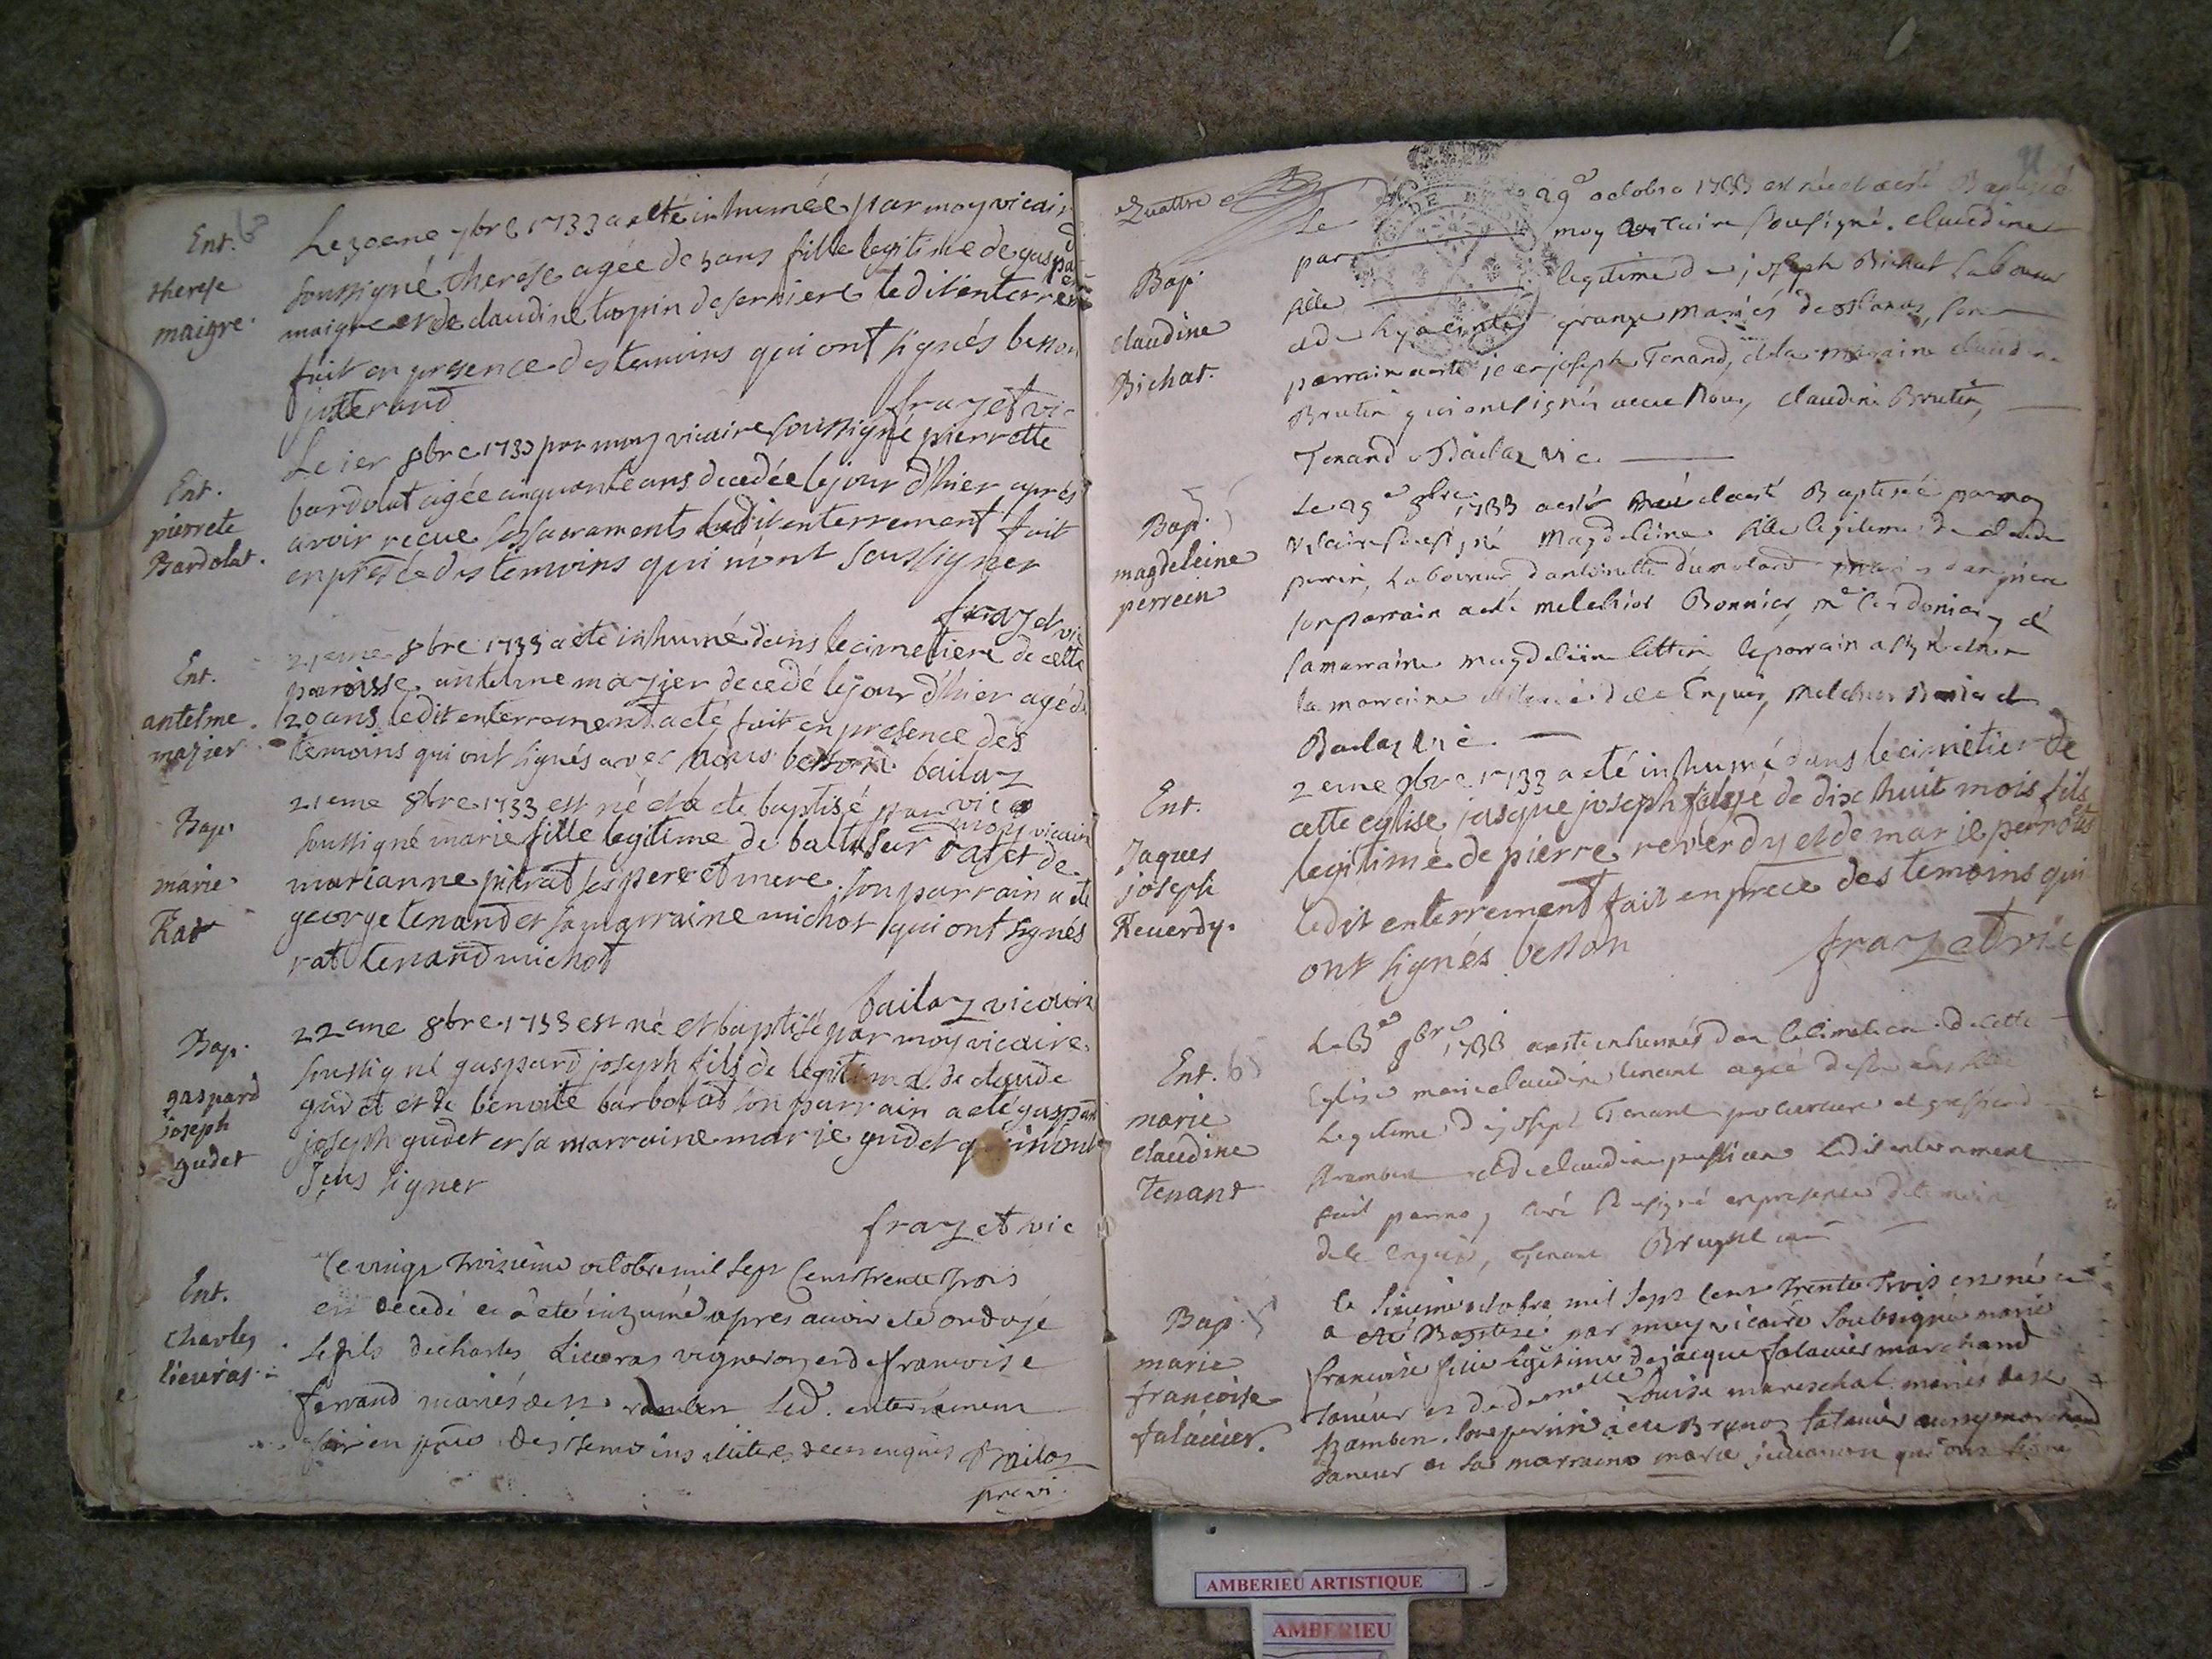 Ent.
therese
maigre.
Le 30eme 7bre 1733 a eté inhumée par moy vicaire
soussigné therese agée de 3 ans fille legitime de gaspard
maigre et de claudine tupin de serniere ledit enterrem
fait en presence des temoins qui ont signés besson
jutterand
frazet vic
Ent.
pierrete
Bardolat.
Le 1er 8bre 1733 par moy vicaire soussigné pierrette
bardolat agée cinquante ans decedée le jour d'hier aprés
avoir recue les sacraments ledit enterrement fait
en presce des temoins qui n'ont sceus signer
frazet vic
Ent.
antelme
mazier
21eme 8bre 1733 a eté inhumé dans le cimetiere de cette
paroisse antelme mazier decedé le jour d'hier agé de
20 ans ledit enterrement a eté fait en presence des
temoins qui ont signés avec nous besson bailaz
vic
Bap.
marie
Rat
21eme 8bre 1733 est né et a ete baptisé par moy vicaire
soussigné marie fille legitime de baltasar rat et de
marianne pitrat ses pere et mere son parrain a ete
george tenand et sa marraine michot qui ont signés
rat tenand michot
bailaz vicaire
Bap.
gaspard
joseph
gudet
22eme 8bre 1733 est né et baptisé par moy vicaire
soussigné gaspard joseph fils de legitime de claude
gudet et de benoite barbolat son parrain a eté gaspard
joseph gudet et sa marraine marie gudet qui n'ont
sceus signer
frazet vic
Ent.
Charles
lieuras
Le vingt troisieme octobre mil sept cent trente trois
est decedé et a eté inhumé apres avoir eté ondoyé
le fils de charles Lieuras vigneron et de francoise
ferrand mariés de st rambert led. enterrement
fait en pñce des temoins illiteres de ce enquis Bailaz
pr. vi.
Quattre
Le 29e octobre 1733 est née et a esté Baptisée
par moy vicaire sousigné. claudine
fille legitime de joseph Bichat laboureur
et de hyacinte grange mariés de
parrain a esté joseph Tenand, et la marraine claudine
Brutin qui ont signés avec Nous, claudine Brutin,
Tenand Bailaz vic.
Bap.
claudine
Bichat.
Bap.
magdeleine
perrein
Le 29e 8bre 1733 a esté née et a esté Baptisée par moy
vicaire sousigné Magdeleine fille legitime de claude
perrin, laboureur d'antoinette dumolard
son parrain a esté melchior Bonnier, me cordonier, et
sa marraine magdeleine le parrain a signé et non
la marraine illiteré de ce Enquis, melchior
Bailaz vic.
Ent.
Jaques
joseph
Reverdy.
2eme 9bre 1733 a eté inhumé dans le cimetier de
cette eglise jasque joseph agé de dix huit mois fils
legitime de pierre reverdy et de marie perrotus
ledit enterrement fait en prece des temoins qui
ont signés besson
frazet vic
Ent.
marie
claudine
Tenant
Le 3e 9bre 1733 a esté inhumé dan le cimetiere de cette
Eglise marie claudine tenant agée de ans fille
Legitime de joseph Tenant procureur et
Rambert et de claudine ledit enterrement
fait par moy curé sousigné en presence de temoin
de ce enquis, Tenant curé
Bap.
marie
francoise
falavier.
Le sixieme octobre mil sept cent trente trois est né et
a eté Baptisé par moy vicaire soubsigné marie
francoise fille legitime de jacque falavier marchand
taneur et de demelle Louise mareschal mariés de st
Rambert. son parrin a eté Bruno falavier aussy marchand
taneur et sa marraine marie qui ont signé
AMBERIEU ARTISTIQUE
AMBERIEU